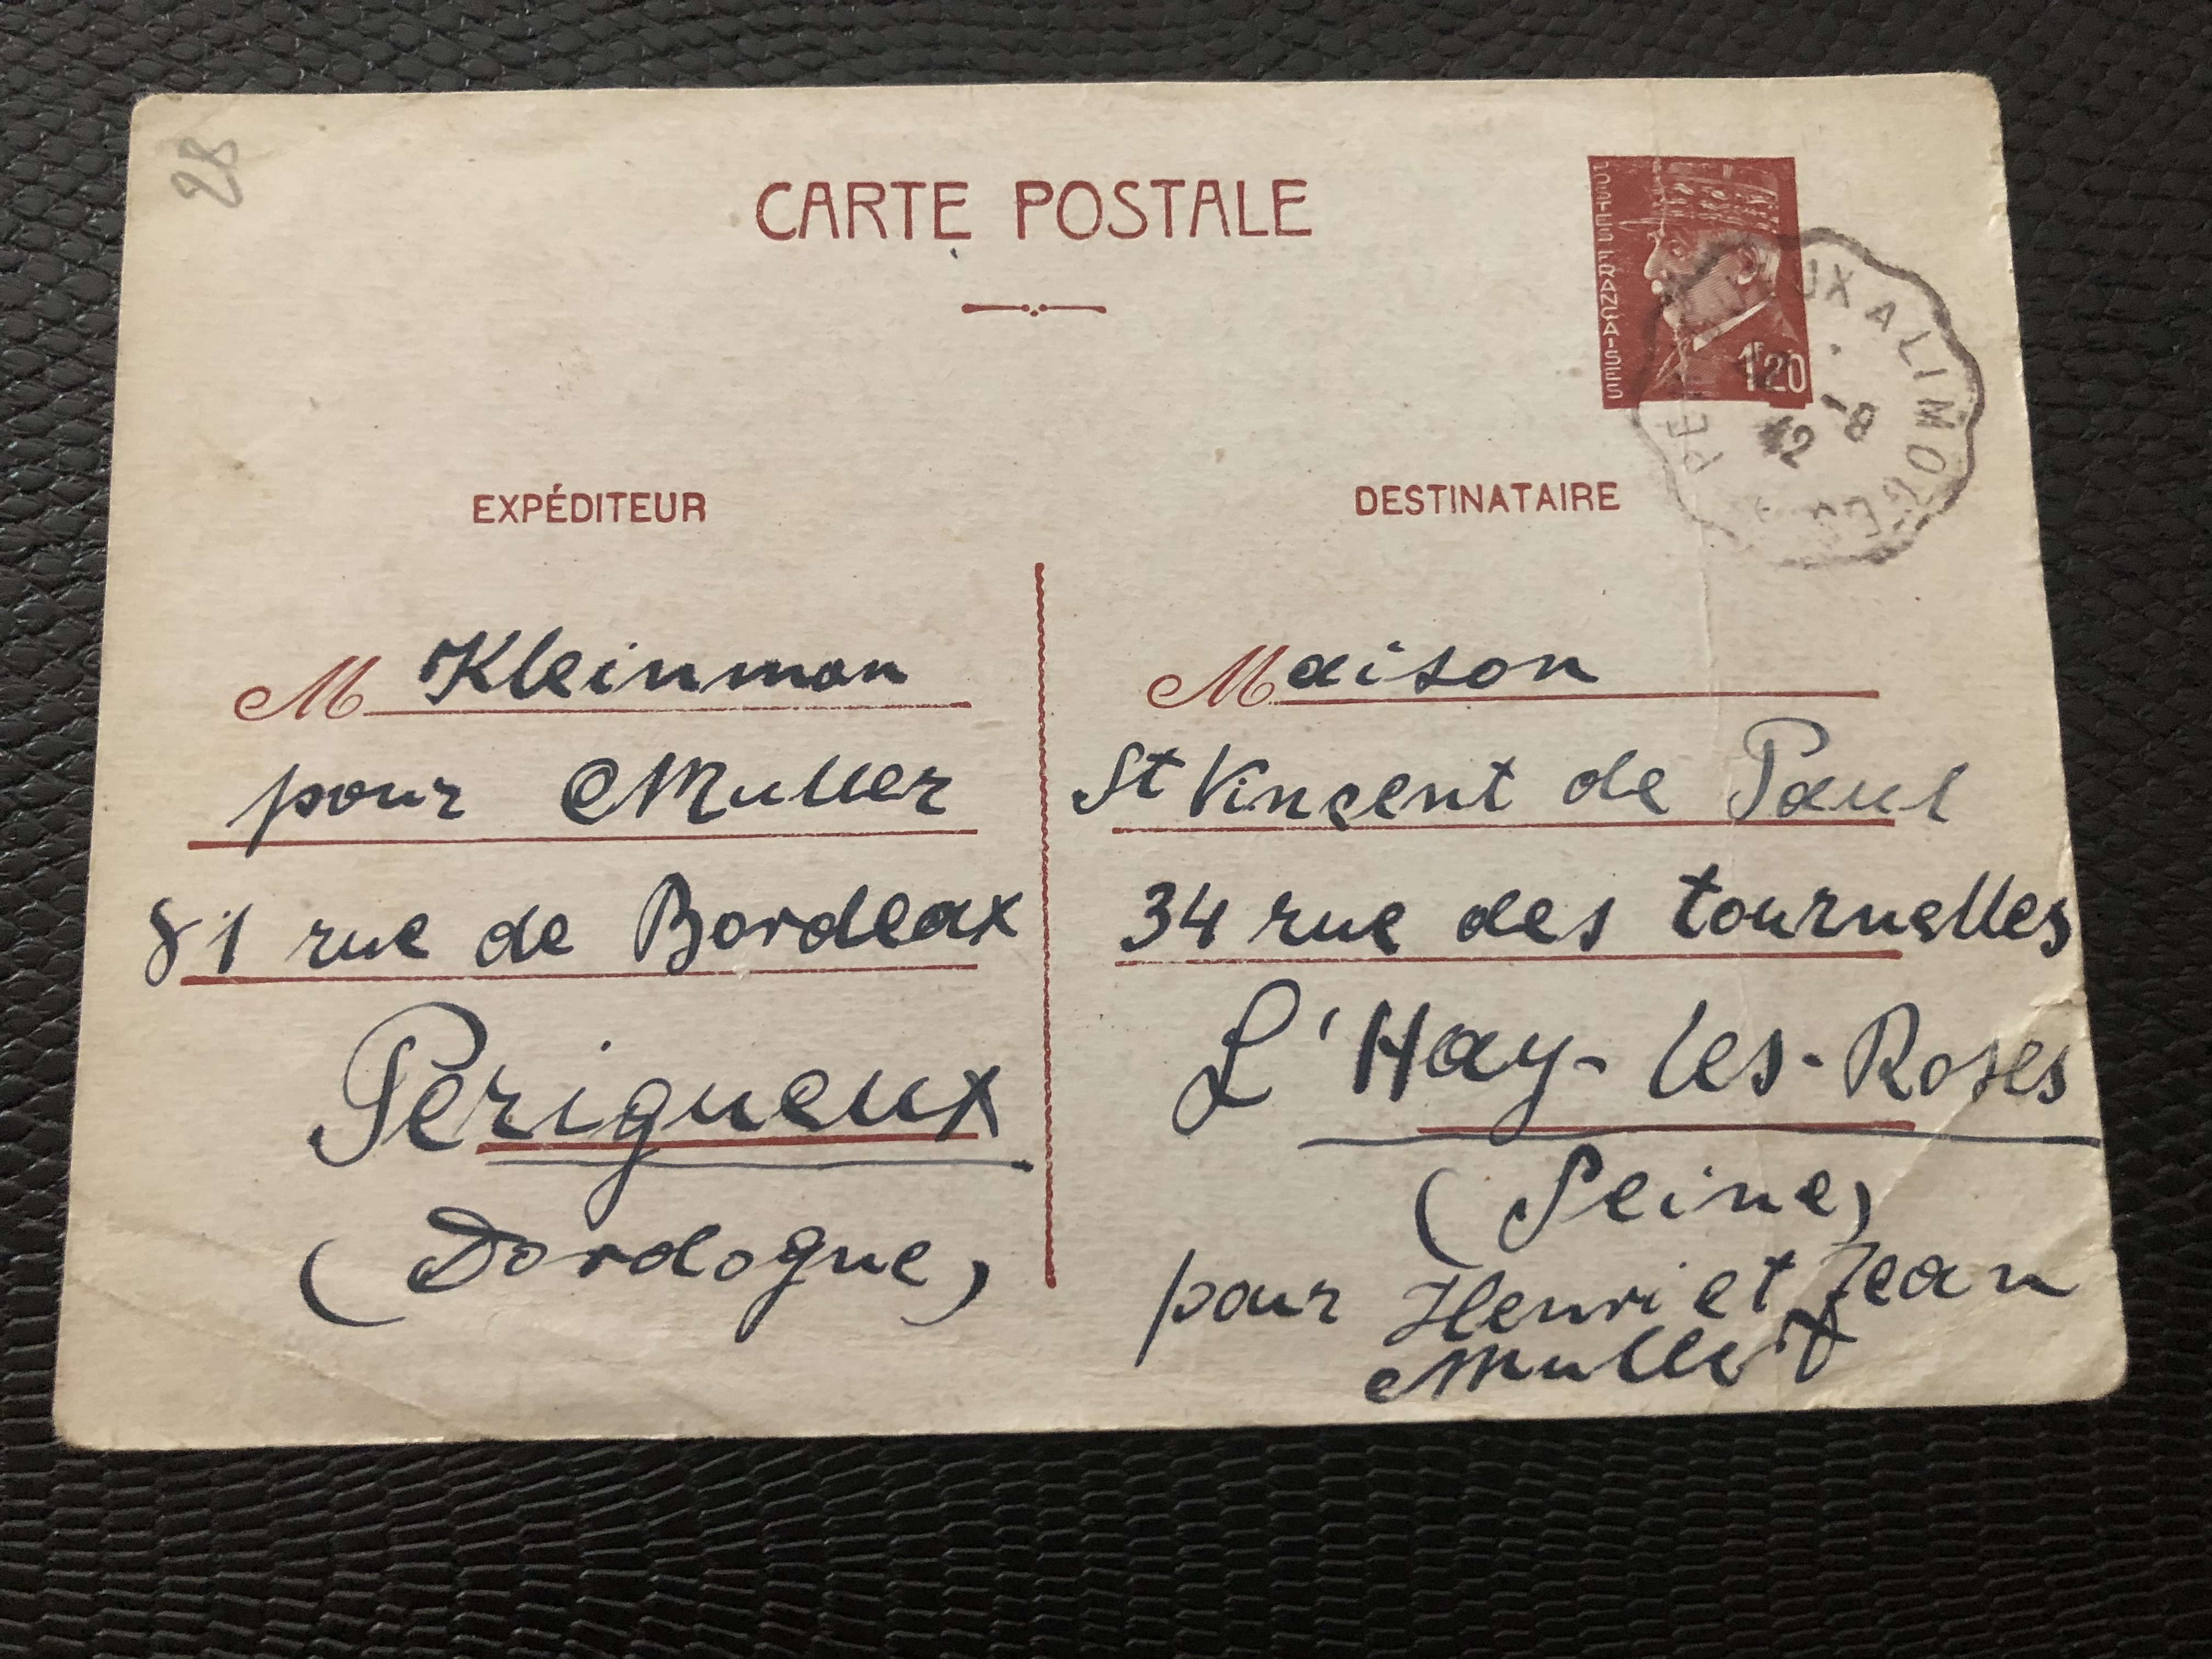 28
CARTE POSTALE
POSTES FRANÇAISES
1F20
PERIGUEUX A LIMOGES
-8
42
EXPÉDITEUR
M Kleinman
pour Muller
81 rue de Bordeax
Perigueux
(Dordogne)
DESTINATAIRE
Maison
St Vincent de Paul
34 rue des tournelles
L'Hay-les-Roses
(Seine)
pour Henri et Jean
Muller